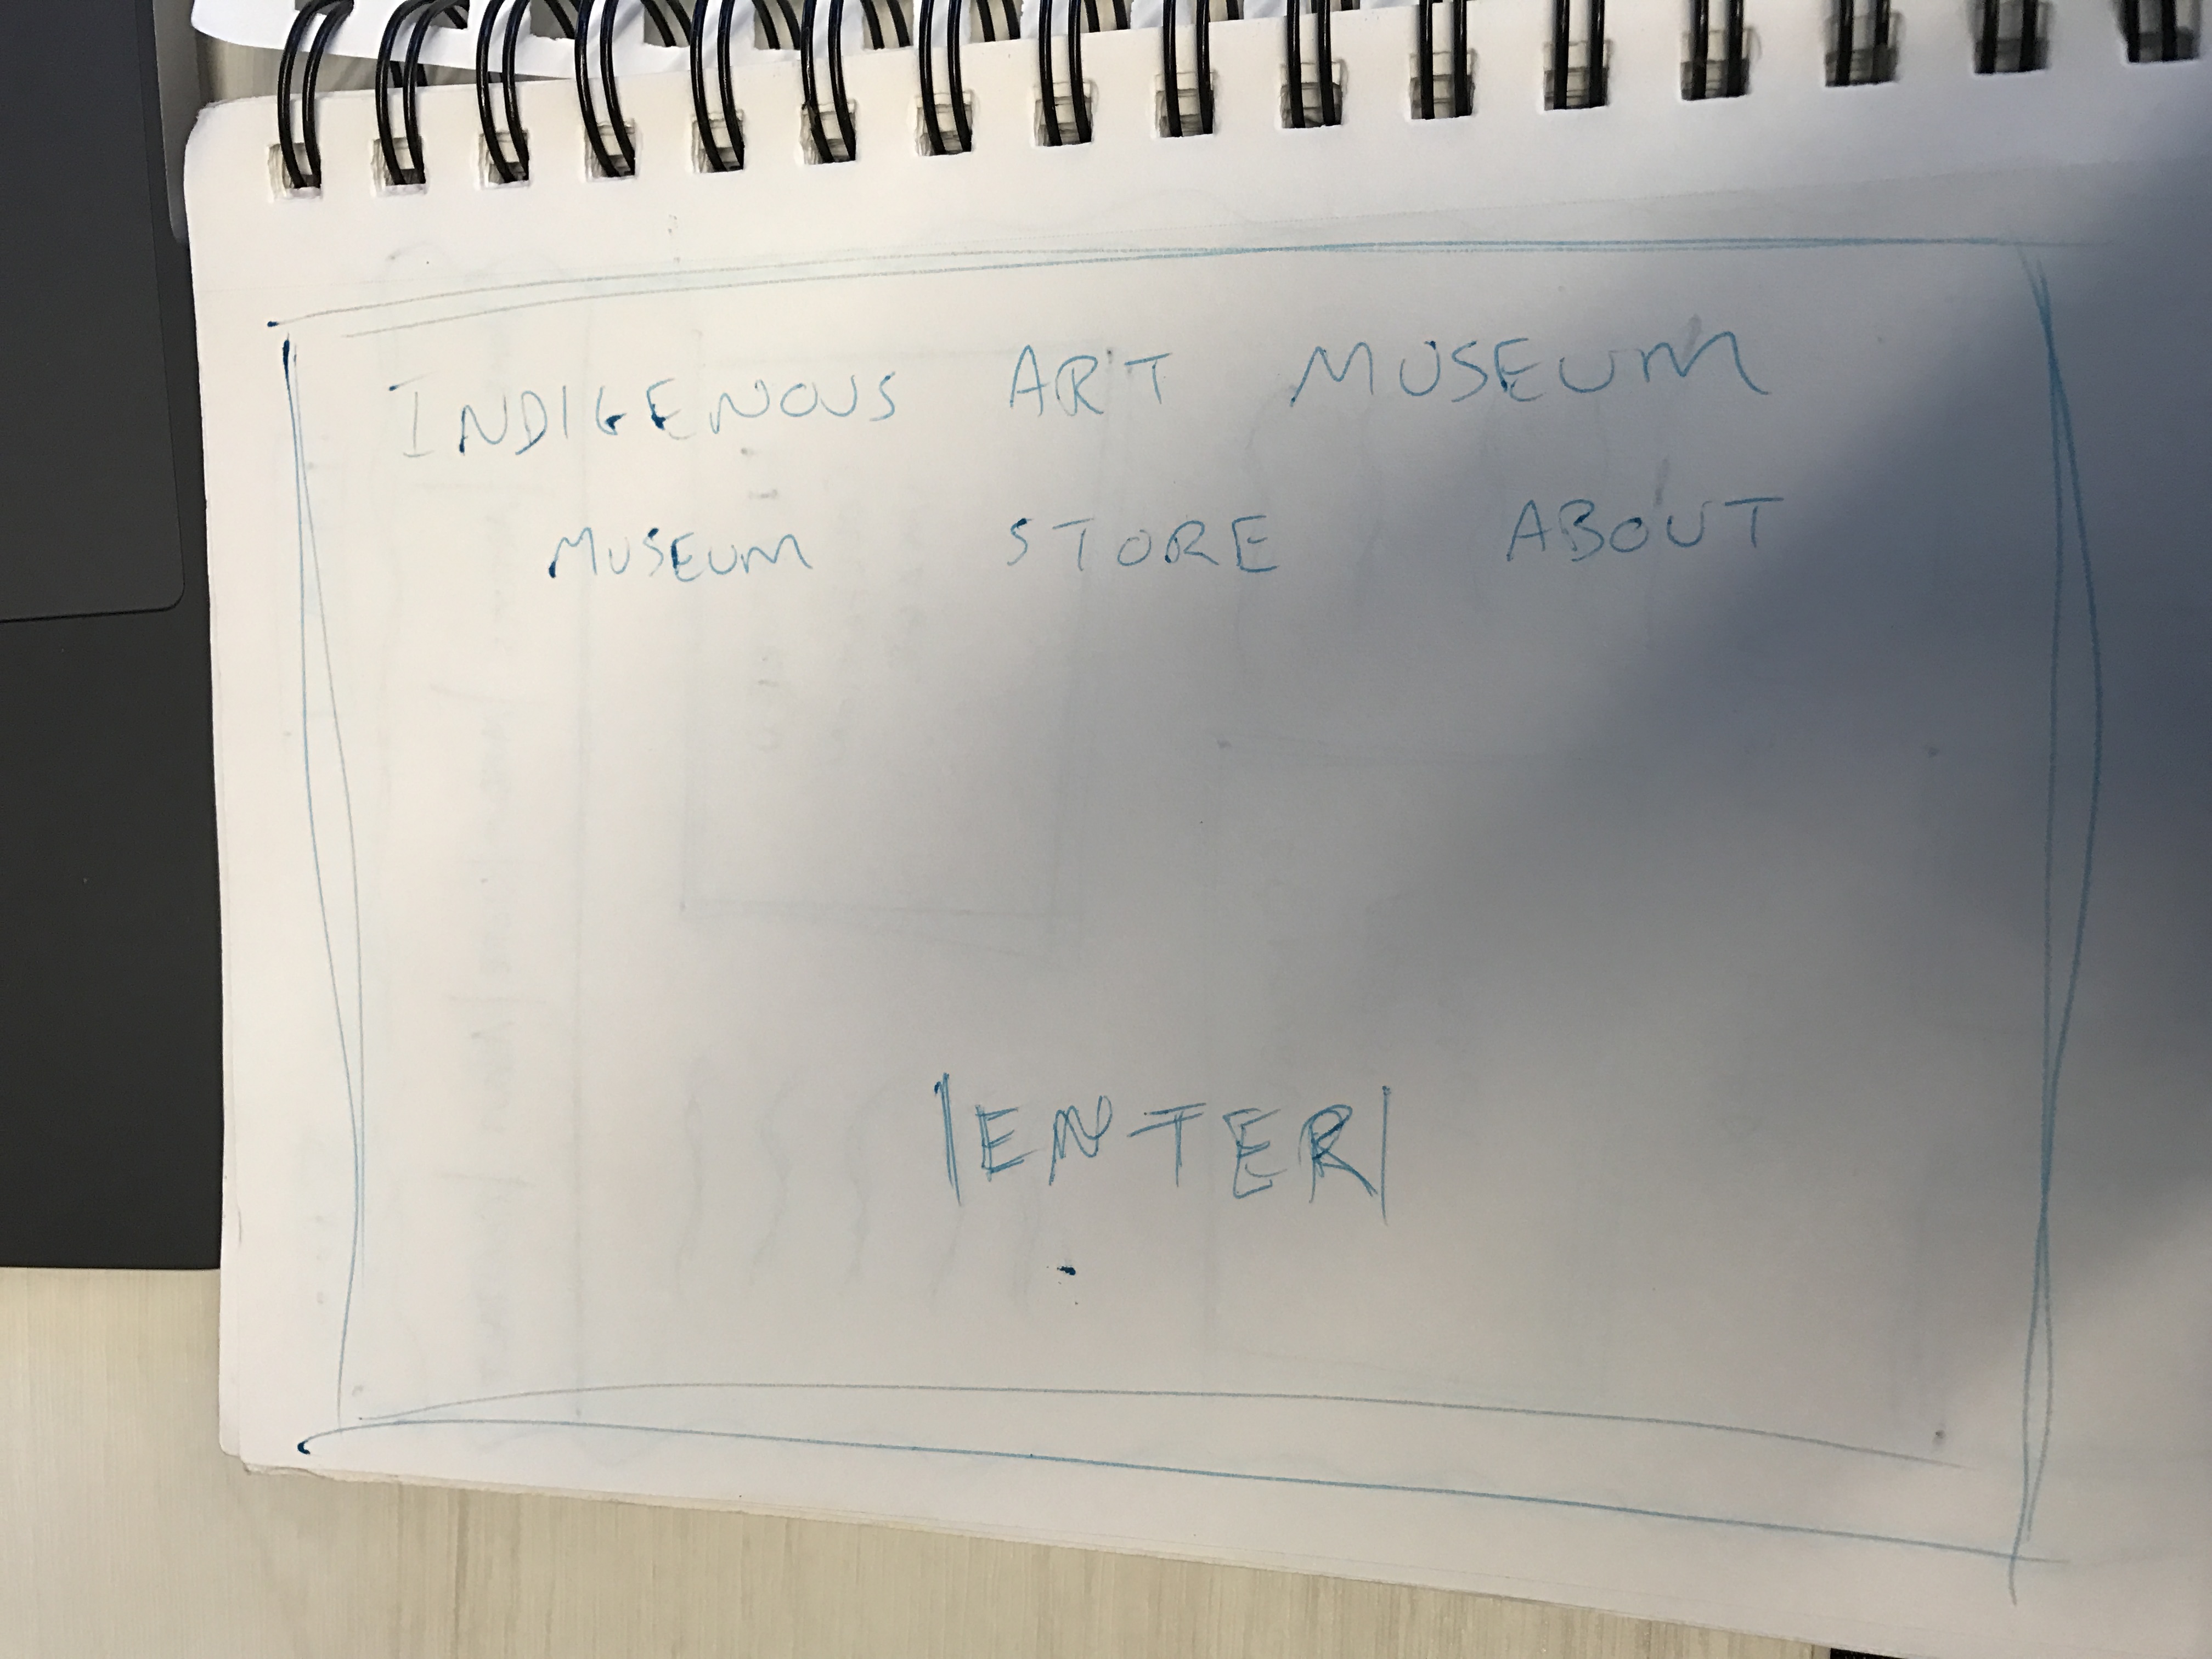 INDIGENOUS ART MUSEUM
MUSEUM STORE ABOUT
|ENTER|